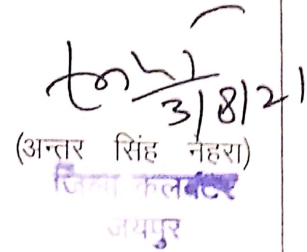 3/8/21
(अन्तर सिंह नेहरा)
जिला कलक्टर
जयपुर